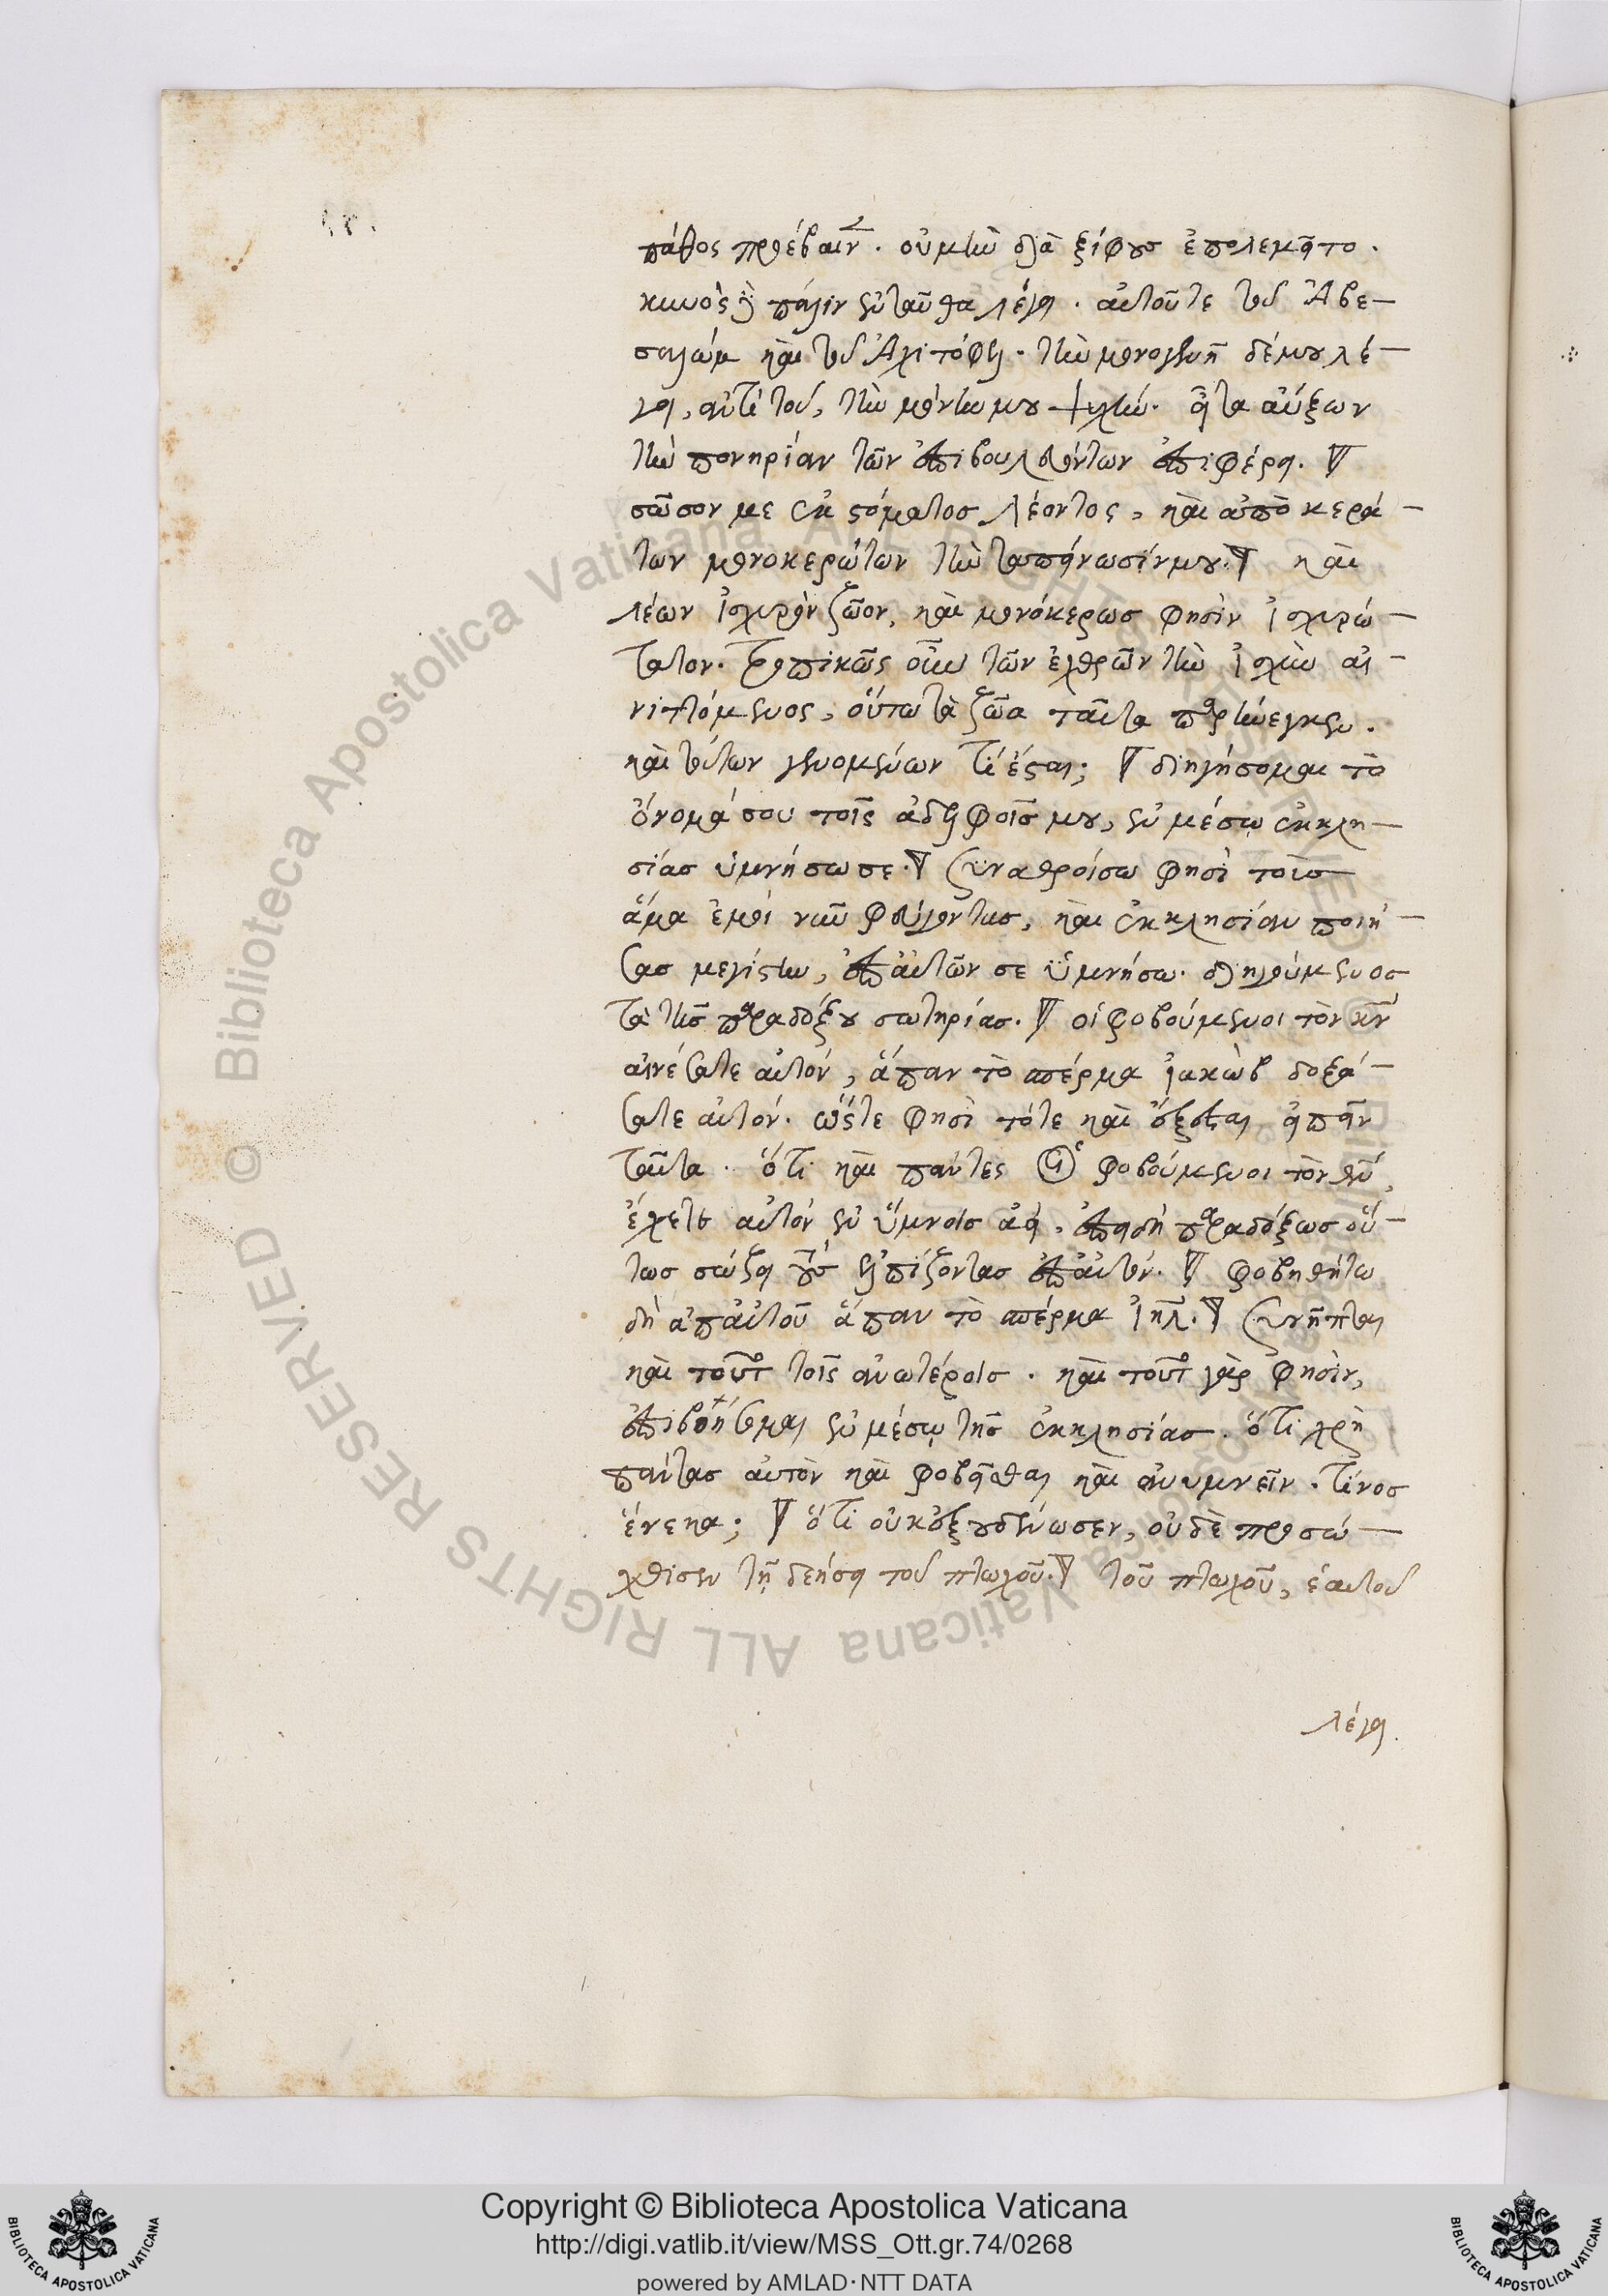 πάθος προέβαιν. οὐ μὴν διὰ ξίφους ἐπολεμεῖτο.
κυνὸς δὲ πάλιν ἐνταῦθα λέγει. αὐτοῦ τε τοῦ Ἀβε-
σαλώμ καὶ τοῦ Ἀχιτόφελ. τὴν μονογενῆ δέ μου λέ-
γει, ἀντὶ τοῦ, τὴν μόνην μου ψυχήν. εἶτα αὔξων
τὴν πονηρίαν τῶν ἐπιβουλευόντων ἐπιφέρει.
σῶσόν με ἐκ στόματος λέοντος, καὶ ἀπὸ κερά-
των μονοκερώτων τὴν ταπείνωσίν μου. καὶ
λέων ἰσχυρὸν ζῶον, καὶ μονόκερως φησὶν ἰσχυρώ-
τατον. τροπικῶς οὖν τῶν ἐχθρῶν τὴν ἰσχὺν αἰ-
νιττόμενος, οὕτω τὰ ζῶα ταῦτα παρήνεγκεν.
καὶ τούτων γενομένων τί ἔσται; διηγήσομαι τὸ
ὄνομά σου τοῖς ἀδελφοῖς μου, ἐν μέσῳ ἐκκλη-
σίας ὑμνήσω σε. συναθροίσω φησὶ τοὺς
ἅμα ἐμοὶ νῦν φεύγοντας, καὶ ἐκκλησίαν ποιή-
σας μεγίστην, ἐπ' αὐτῶν σε ὑμνήσω. διηγούμενος
τὰ τῆς παραδόξου σωτηρίας. οἱ φοβούμενοι τὸν κν
αἰνέσατε αὐτόν, ἅπαν τὸ σπέρμα ἰακὼβ δοξά-
σατε αὐτόν. ὥστε φησὶ τότε καὶ ἔξεσται εἰπεῖν
ταῦτα. ὅτι καὶ πάντες οἱ φοβούμενοι τὸν θν,
ἔχετε αὐτὸν ἐν ὕμνοις ἀεί. ἐπειδὴ παραδόξως οὕ-
τως σώζει τοὺς ἐλπίζοντας ἐπ' αὐτόν. φοβηθήτω
δὴ ἀπ' αὐτοῦ ἅπαν τὸ σπέρμα ἰηλ. συνῆπται
καὶ τοῦτο τοῖς ἀνωτέροις. καὶ τοῦτο γὰρ φησίν,
ἐπιβοήσομαι ἐν μέσῳ τῆς ἐκκλησίας. ὅτι χρὴ
πάντας αὐτὸν καὶ φοβεῖσθαι καὶ ἀνυμνεῖν. τίνος
ἕνεκα; ὅτι οὐκ ἐξουδένωσεν, οὐδὲ προσώ-
χθισεν τῇ δεήσει τοῦ πτωχοῦ. τοῦ πτωχοῦ, ἑαυτοῦ
λέγει.
Copyright © Biblioteca Apostolica Vaticana
http://digi.vatlib.it/view/MSS_Ott.gr.74/0268
powered by AMLAD·NTT DATA